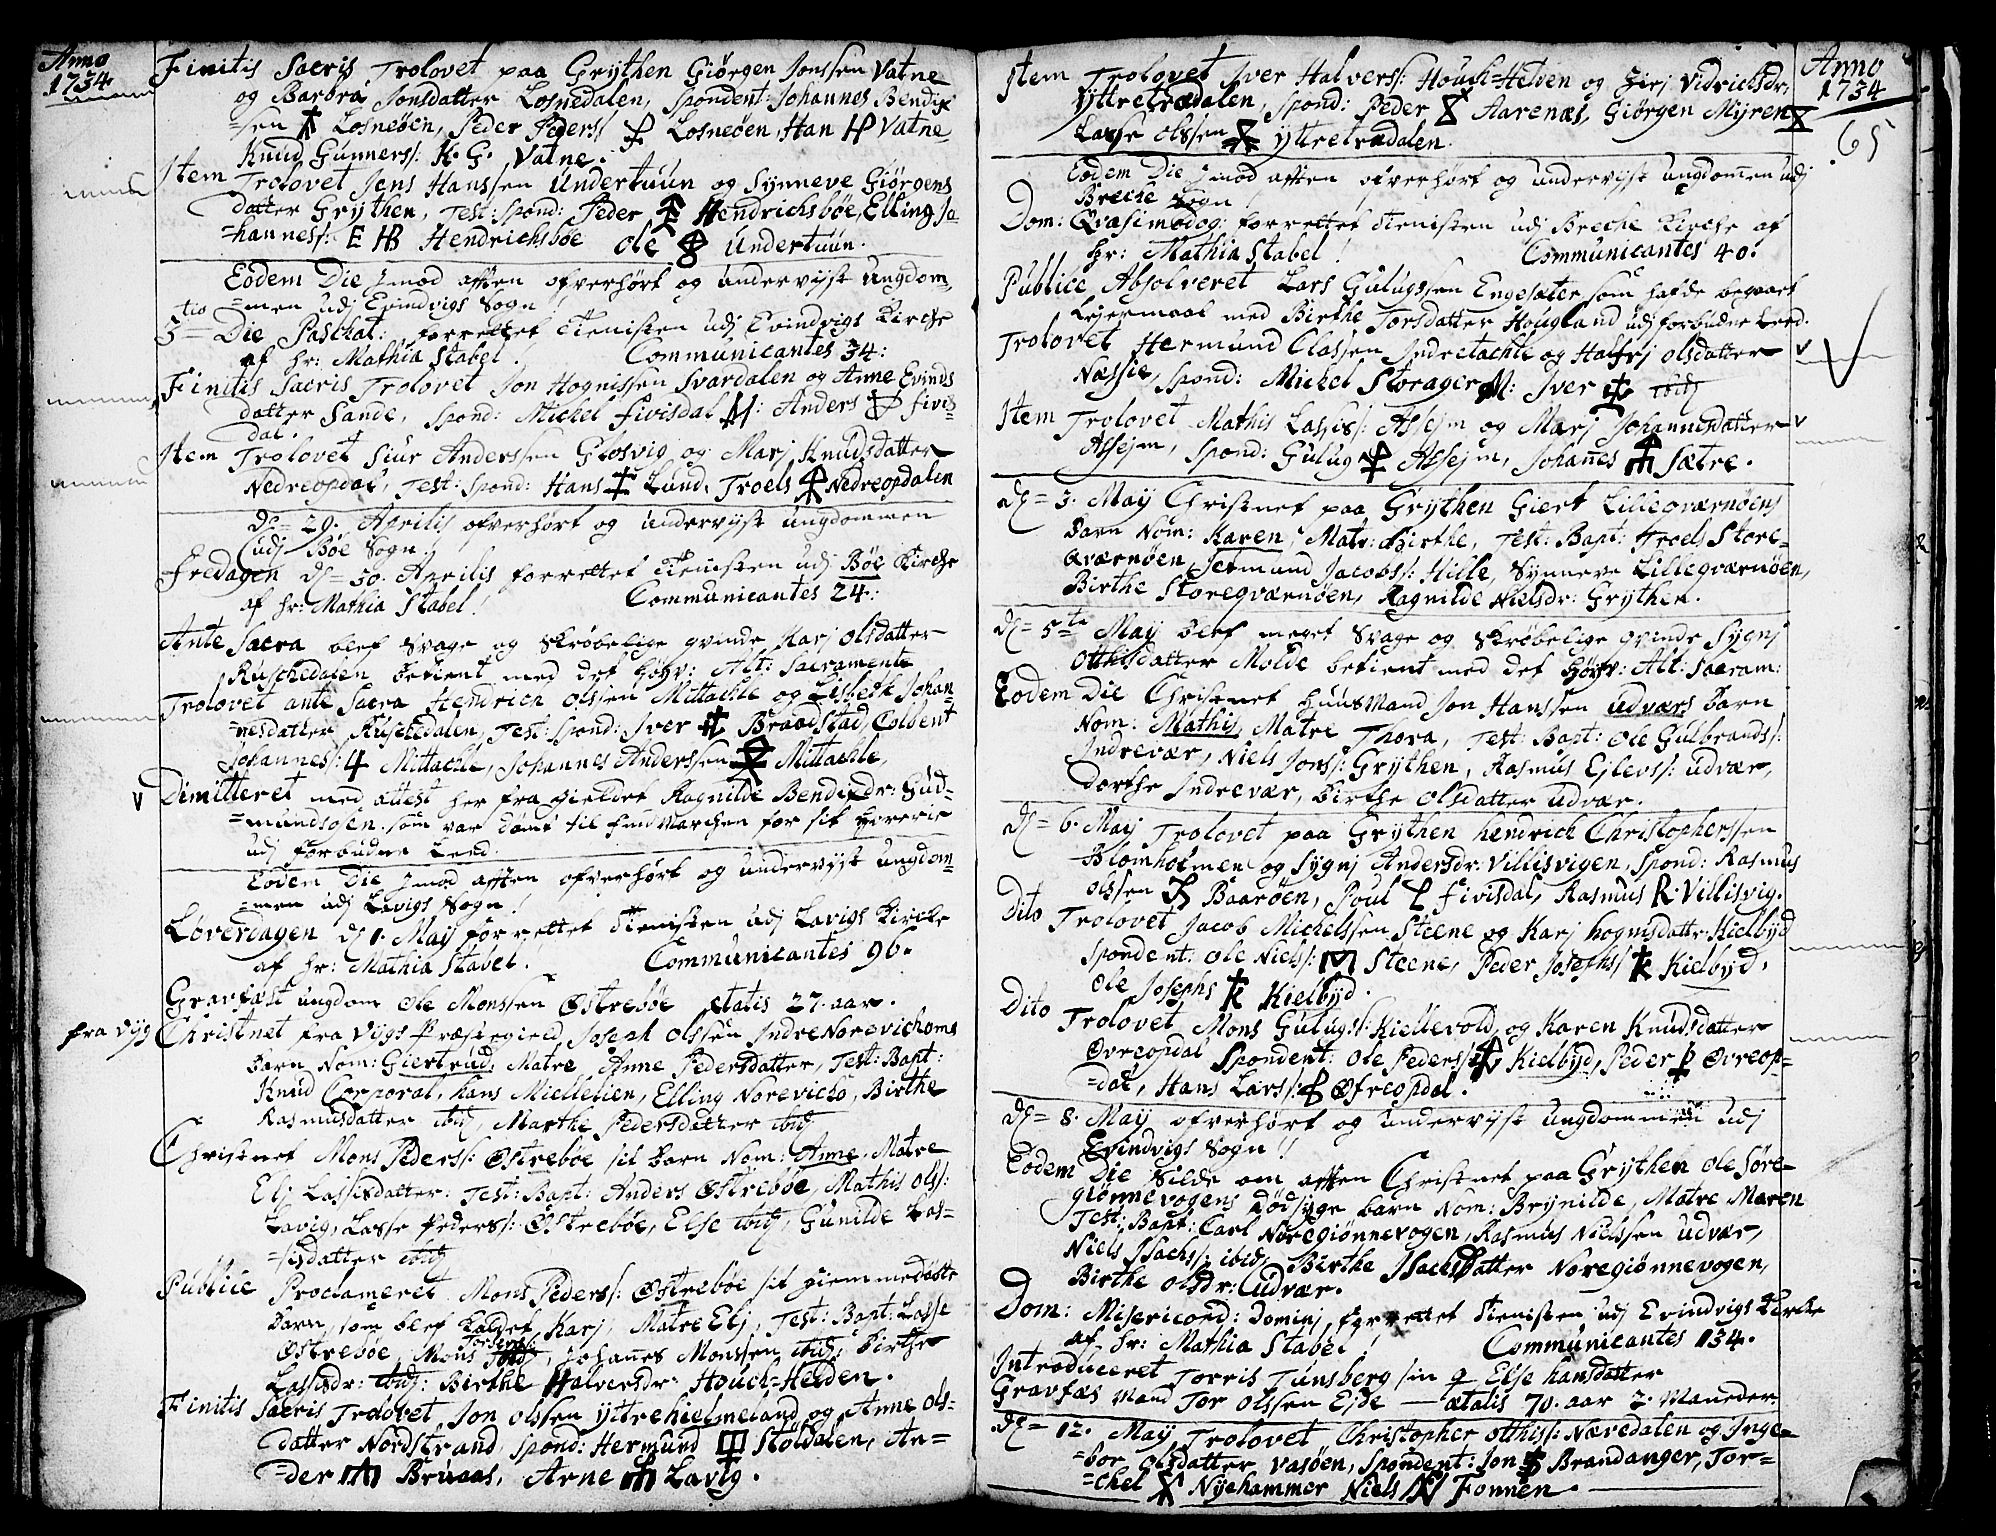 Anno
1734
Finitis Sacris Trolovet paa Grythen Giørgen Jonssen Vatne
og Barbra Jonsdatter Losnedalen, Spondent: Johannes Bendix
=sen Losneøen, Peder Peders: Losneøen, Han H Vatne
Knud Gunners: K. G. Vatne.
Item Trolovet Jens Hanssen Undertuun og Synneve Giørgens
datter Grythen, Test: Spond: Peder Hendrichsbøe, Elling Jo=
=hannes: E HB Hendrichsbøe Ole Undertuun.
Eodem Die imod afften ofverhørt og undervyst ungdom=
=men udj Evindvigs Sogn!
3tio Die Paschat: forrettet Tienisten udj Evindvigs Kirche
af hr: Mathia Stabel. Communicantes 34:
Finitis Sacris Trolovet Jon Hognissen Svardalen og Anne Evinds
datter Sande, Spond: Michel Fivisdal M: Anders Fivis=
dal.
Item Trolovet Siur Anderssen Glosvig og Marj Knudsdatter
Nedreopdal, Test: Spond: Hans Lund, Troels Nedreopdalen
d= 29. Aprilis ofverhørt og undervyst ungdommen
udj Bøe Sogn.
Fredagen d= 30. Aprilis forrettet Tienisten udj Bøe Kirche
af hr: Mathia Stabel! Communicantes 24:
Ante Sacra blef Svage og Skrøbelige qvinde Karj Olsdatter
Ruschedalen betient med det Høyv: Alt: Sacramente
Trolovet ante Sacra Hendrich Olssen Mittachle og Lisbeth Johan=
=nesdatter Ruschedalen, Test: Spond: Iver Braadstad, Colbent
Johannes: 4 Mittachle, Johannes Anderssen Mittachle,
v Dimitteret med attest her fra gieldet Ragnilde Bendixdr: Gud=
=mundsøen. som var dømt til Finmarchen for sit Horerie
udj forbuden Leed.
Eodem Die imod afften ofverhørt og undervyst ungdom=
=men udj Lavigs Sogn!
Løverdagen d 1. Maij forrettet Tienisten udj Lavigs Kirche
af hr: Mathia Stabel. Communicantes 96.
Gravfæst ungdom Ole Monssen Østrebøe ætatis 27. aar.
fra Vyg Christnet fra Vygs Præstegield, Joseph Olssen Indre Norevichoms
Barn Nom: Giertrud, Matre Anne Pedersdatter, Test: Bapt:
Knud Corporal, Hans Miellelien, Elling Norevicho, Birthe
Rasmusdatter ibid, Marthe Pedersdatter ibid
Christnet Mons Peders: Østrebøe sit Barn Nom: Anne. Matre
Elj Lassisdatter: Test: Bapt: Anders Østrebøe, Mathis Ols:
Lavig, Lasse Peders: Østrebøe, Else ibid, Gunilde Las=
=sisdatter ibid
Publice Proclameret Mons Peders: Østrebøe sit hiemmedøbte
Barn, som blef kaldet Karj, Matre Elj, Test: Bapt: Lasse
Østrebøe, Mons ibid, Johannes Monssen ibid, Birthe
Lassisdr: ibid: Birthe Halversdr: Houch=Helden.
Finitis Sacris Trolovet Jon Olssen Yttrehielmeland og Anne Ols=
datter Nordstrand, Spond: Hermund Støldalen, An=
=der Bruaas, Arne Lavig.
Item Trolovet Iver Halvers: Houch=Helden og Sirj Vidrichsdr.
Yttretrædalen, Spond: Peder Aarenæs, Giørgen Myren
Lasse Olssen Yttretrædalen.
Anno
1734
65
Eodem Die imod afften ofverhørt og undervyst ungdommen udj
Breche Sogn
Dom: Qvasimodog. forrettet Tienisten udj Breche Kirche af
hr: Mathia Stabel! Communicantes 40.
Publice Absolveret Lars Gulugssen Engesæter som hafde begaaet
Lejermaal med Birthe Torsdatter Hougland udj forbuden Leed.
Trolovet Hermund Classen Indretachle og Halfrj Olsdatter v
Næssie, Spond: Michel Storager M: Iver ibid
Item Trolovet Mathis Lassis: Assejm og Marj Johannisdatter v
Assejm, Spond: Gulug Assejm, Johannes Sætre.
d= 3. Maij Christnet paa Grythen Giert Lilleqværnøens
Barn Nom: Karen, Matr: Birthe, Test: Bapt: Troels Store=
qværnøen, Jetmund Jacobs: Hille, Synneve Lilleqværnøen,
Birthe Storeqværnøen, Ragnilde Nielsdr: Grythen.
d= 5te Maij blef meget Svage og Skrøbelige qvinde Sygnj
Otthisdatter Molde betient med det Høyv: Alt: Sacram:
Eodem Die Christnet Huusmand Jon Hanssen Udværs Barn
Nom: Mathis, Matre Thora, Test: Bapt: Ole Gulbrands:
Indrevær, Niels Jons: Grythen, Rasmus Ejlevs: Udvær,
Dorthe Indrevær, Birthe Olsdatter Udvær.
d= 6. Maij Trolovet paa Grythen Hendrich Christopherssen
Blomholmen og Sygnj Andersdr: Villisvigen, Spond: Rasmus
Olssen Baarøen, Poul Fivisdal, Rasmus R. Villisvig.
Dito Trolovet Jacob Michelssen Steene og Karj Hognisdattr Kielbyd
Spondent: Ole Niels: Steene, Peder Josephs: Kielbyd,
Ole Josephs Kielbyd.
Dito Trolovet Mons Gulugs: Kiellevold, og Karen Knudsdatter
Øvreopdal Spondent: Ole Peders: Kielbyd, Peder Øvreop=
=dal, Hans Lars: Øfreopdal.
d= 8. Maij ofverhørt og undervyst ungdommen udj
Evindvigs Sogn!!
Eodem Die Silde om afften Christnet paa Grythen Ole Søre=
giønnevogens dødsyge barn Nom: Brynilde, Matre Maren
Test: Bapt: Carl Noregiønnevogen, Rasmus Nielssen Udvær,
Niels Isachs: ibid, Birthe Isachsdatter Noregiønnevogen,
Birthe Olsdr: Udvær.
Dom: Misericord: Dominj, forrettet Tienisten udj Evindvigs Kirche
af hr: Mathia Stabel! Communicantes 134.
Introduceret Torris Tunsberg sin q Else Hansdatter
Gravfæs Mand Tor Olssen Ejde — ætatis 70. aar 2. Maneder.
d= 12. Maij Trolovet Christopher Otthis: Næredalen og Inge=
=bor Olsdatter Vasøen, Spondent: Jon Brandanger, Tor=
=chel Nyehammer Niels N Fonnen.